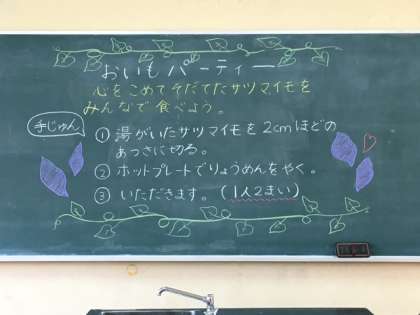 おいもパーティー
心をこめてそだてたサツマイモを
みんなで食べよう。
手じゅん
① 湯がいたサツマイモを2cmほどの
あつさに切る。
② ホットプレートでりょうめんをやく。
③ いただきます。(1人2まい)